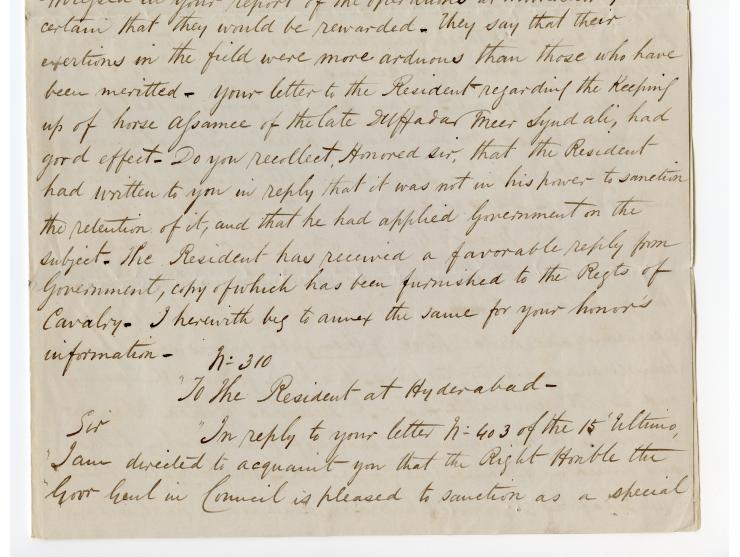 in your report of the
certain that they would be rewarded - They say that their
exertions in the field were more arduous than those who have
been meritted - your letter to the Resident regarding the Keeping
up of horse Assamee of the late Duffadar Meer Synd ali, had
good effect - Do you recollect, Honored sir, that the Resident
had written to you in reply that it was not in his power to sanction
the retention of it, and that he had applied Government on the
subject - The Resident has received a favorable reply from
Government, copy of which has been furnished to the Regts of
Cavalry - I herewith beg to annex the same for your honor's
information -
N: 310
"To The Resident at Hyderabad -
Sir
"In reply to your letter N: 403 of the 15' Ultimo,
"I am directed to acquaint you that the Right Honble the
"Govr Genl in Council is pleased to sanction as a special